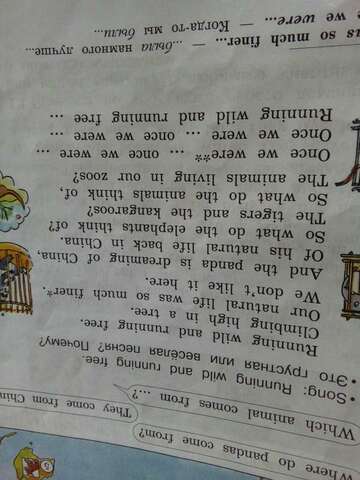 Where do pandas come from?
They come from Chin
Which animal comes from ...?
• Song: Running wild and running free.
• Это грустная или весёлая песня? Почему?
Running wild and running free.
Climbing high in a tree.
Our natural life was so much finer*.
We don't like it here.
And the panda is dreaming of China,
Of his natural life back in China.
So what do the elephants think of?
The tigers and the kangaroos?
So what do the animals think of,
The animals living in our zoos?
Once we were** ... once we were ...
Once we were ... once we were ...
Running wild and running free ...
so much finer... — ...была намного лучше...
we were... — Когда-то мы были...